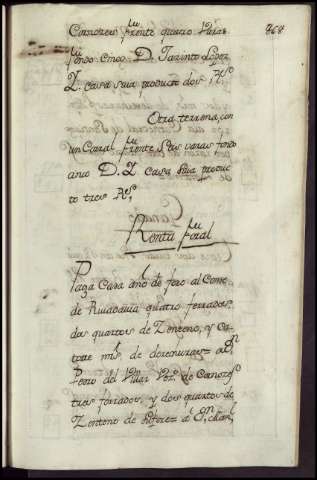 868
Canores su frente quatro varas
su fondo cinco D. Jazinto Lopez
Z. casa suia producto dos Rs
Otra terrena, con
un Corral su frente Seis varas fondo
cinco D. Z casa suia produc
to tres Rs,
Renta foral
Paga Cada año de foro al Conde
de Rivadavia quatro ferrados,
dos quartos de Zenteno, y Ca
torze ms de derechuras= a Dn
Pedro del Villar Vezo de Canores
tres ferrados, y dos quartos de
Zenteno de